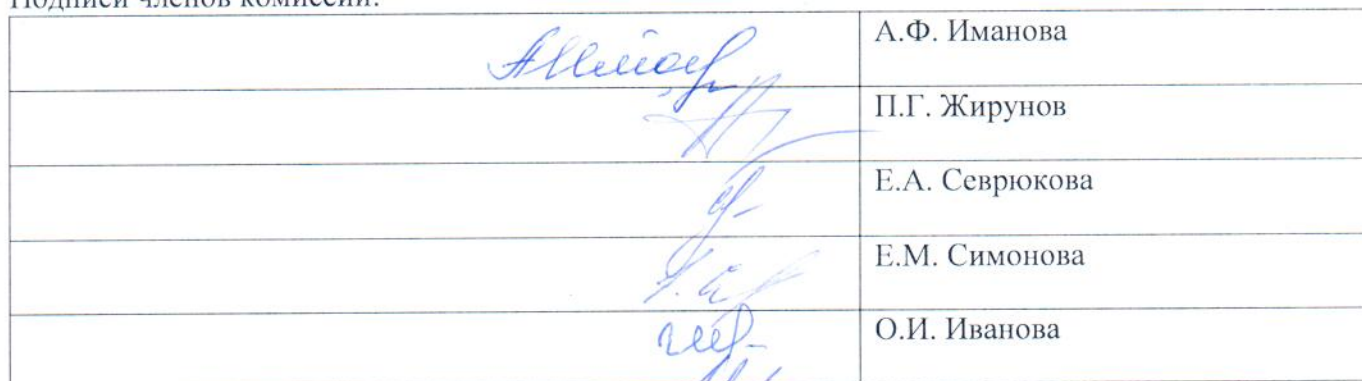 Подписи членов комиссии:
А.Ф. Иманова
П.Г. Жирунов
Е.А. Севрюкова
Е.М. Симонова
О.И. Иванова